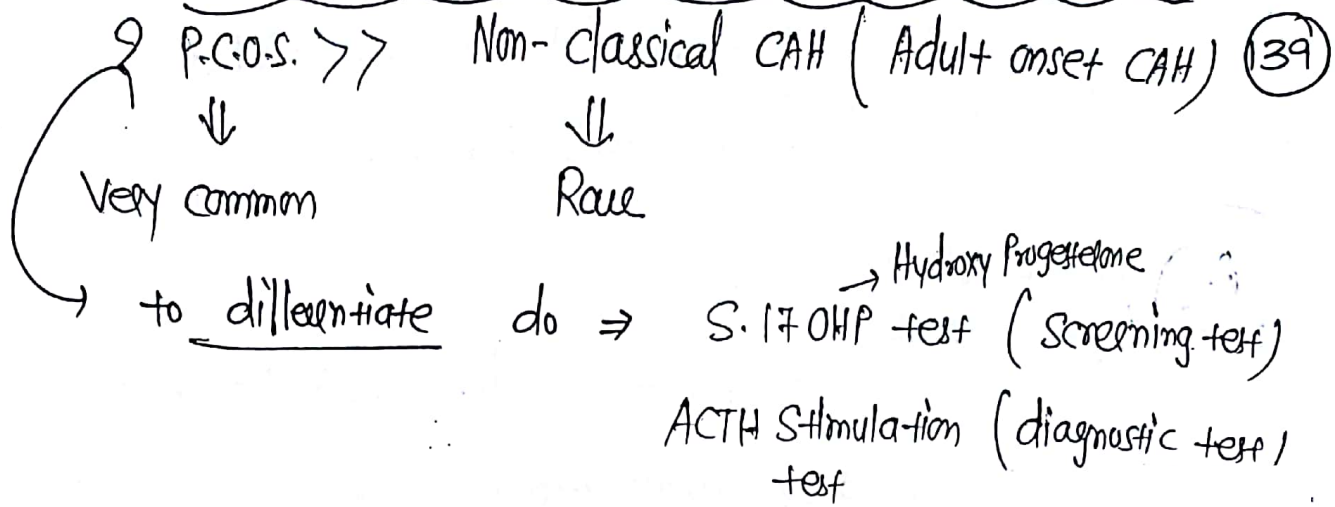 P.C.O.S. >> Non-classical CAH (Adult onset CAH) 139
⇓ ⇓
Very common Rare
→ Hydroxy Progesterone
to differentiate do ⇒ S. 17 OHP test (screening test)
ACTH Stimulation (diagnostic test)
test